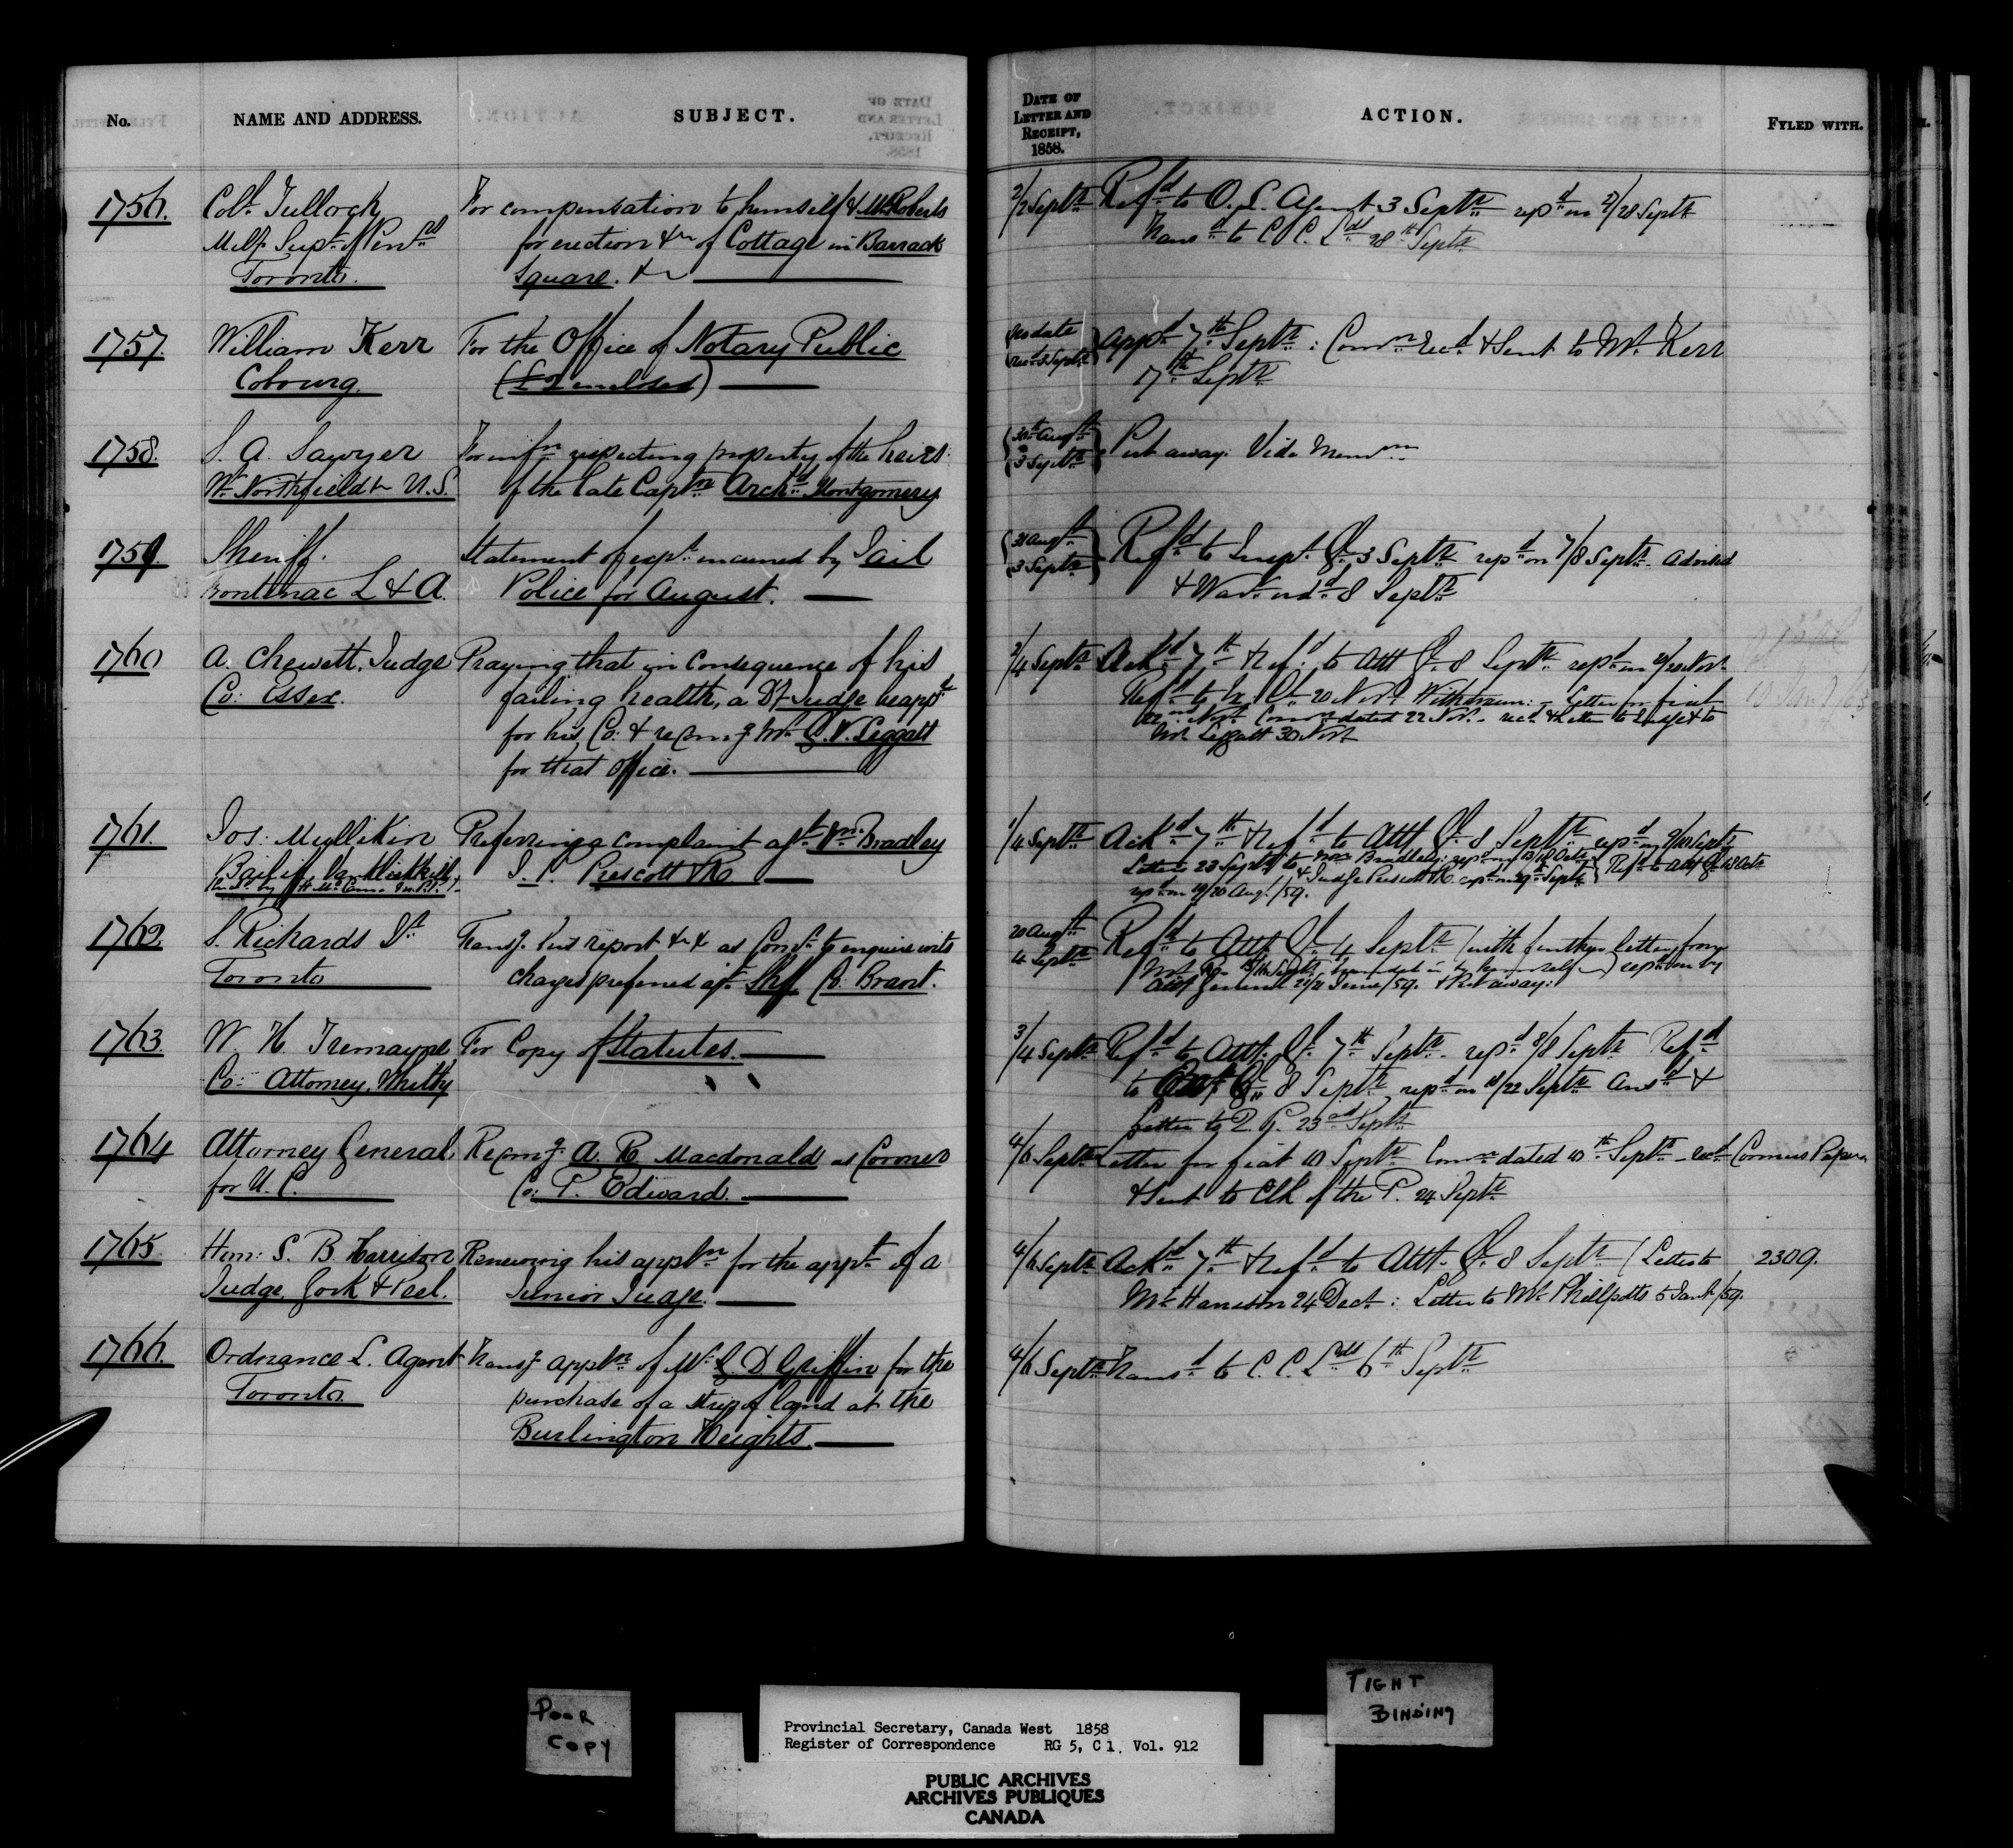 No.
NAME AND ADDRESS.
SUBJECT.
DATE OF
LETTER AND
RECEIPT,
1858.
ACTION.
FYLED WITH.
1756.
Colr. Tulloch
Supt. of Pens
Toronto.
For compensation to himself & Mr. Roberts
for erection &c of Cottage in Barrack
Square. &c
2/2 Septr.
Refd. to O. L. Agent 3 Septr. repd. on 27/28 Septr.
Transd. to C. C. Lds. 28th Septr.
1757.
William Kerr
Cobourg.
For the Office of Notary Public
(£2 enclosed)
no date
rec. 3 Septr.
Appd. 7th Septr: Comn. recd. & Sent to Mr. Kerr
17th Septr.
1758.
S. A. Sawyer
W. Northfield U.S.
For infn. respecting property of the heirs
of the late Captn. Archd. Montgomery
30th Augt.
3 Septr.
Put away. Vide Memdm.
1759.
Sheriff.
Frontenac L & A.
Statement of expt. incurred by Jail
Police for August.
31 Augt.
3 Septr.
Refd. to Inspt. Gl. 3 Septr. repd. on 7/8 Septr. Advised
& Wart. ordd. 8 Septr.
1760
A. Chewett, Judge
Co: Essex.
Praying that in consequence of his
failing health, a Dy. Judge be appt.
for his Co: & recomg. Mr. G. W. Leggatt
for that office.
2/4 Septr.
Ackd. 7th & refd. to Att. Gl. 8 Septr. repd. on 20 Novr.
Refd. to 20 Novr. Withdrawn: Letter for fiat
22nd Novr. Comn. dated 22 Nov. recd. & letter to Judge & to
Mr. Leggatt 30 Novr.
1761.
Jos: Mullikin
Bailiff, VanKleekhill
Preferring a complaint agt. Wm. Bradley
J. P. Prescott & R
1/4 Septr.
Ackd. 7th & Refd. to Att. Gl. 8 Septr. repd. on 9/10 Septr.
Letters 23 Septr. to Wm. Bradley: repd. on 13/18 Octr.
& Judge Prescott & R. Septr. Refd. to Att. Gl. 18 Octr.
repd. on 19/20 Augt./59.
1762.
S. Richards
Toronto
Transg. his report &c & as Comr. to enquire into
charges preferred agt. Shff. Co. Brant.
20 Augt.
4 Septr.
Refd. to Att. Gl. 4 Septr. (with further letter from
Mr. Septr. handed in by himself) repd. on by
Att. General 20/21 June/59. & Put away:
1763.
W. H. Tremayne
Co: Attorney, Whitby
For Copy of Statutes.
3/4 Septr.
Refd. to Att. Gl. 7th Septr. repd. 8/8 Septr. Refd.
to 8 Septr. repd. on 18/22 Septr. Ansd. &
Letter to Q. P. 23rd Septr.
1764
Attorney General
for U. C.
Recomg. A. R. Macdonald as Coroner
Co: P. Edward.
4/6 Septr.
Letter for fiat 10 Septr. Comn. dated 10th Septr. recd.
& Sent to Clk of the P. 24 Septr.
Coroners Papers
1765.
Hon: S. B. Harrison
Judge, York & Peel.
Renewing his appln. for the appt. of a
Junior Judge.
4/6 Septr.
Ackd. 7th & refd. to Att. Gl. 8 Septr. (Letter to
Mr. Harrison 24 Decr: Letter to Mr. Phillpotts 5 Jan./59.
2309.
1766.
Ordnance L. Agent
Toronto.
Transg. appln. of Mr. G. D. Griffin for the
purchase of a strip of land at the
Burlington Heights.
4/6 Septr.
Transd. to C. C. Lds. 6th Septr.
POOR
COPY
TIGHT
BINDING
Provincial Secretary, Canada West 1858
Register of Correspondence RG 5, C 1, Vol. 912
PUBLIC ARCHIVES
ARCHIVES PUBLIQUES
CANADA